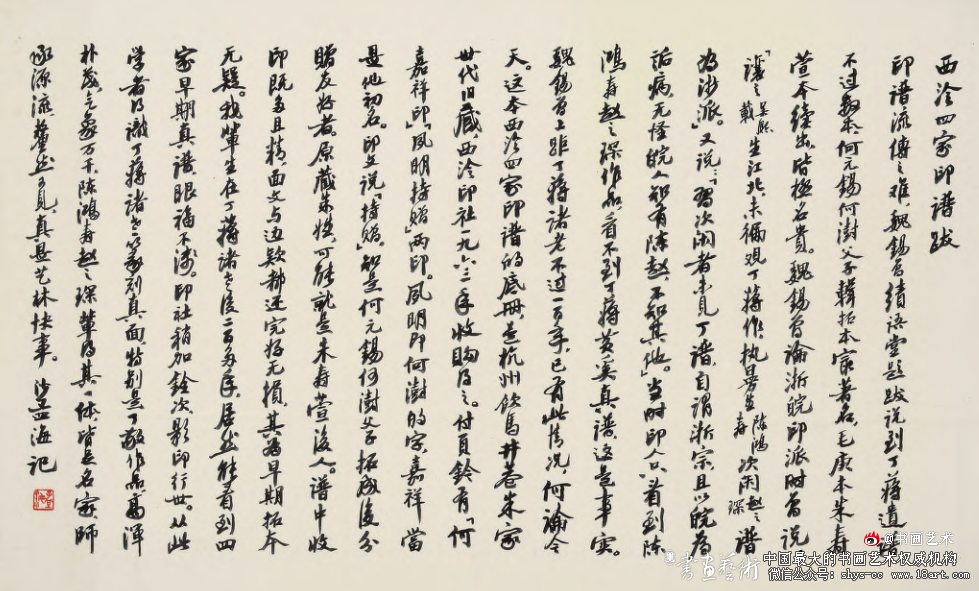 西泠四家印谱跋
印谱流传之难，魏锡曾绩语堂题跋说到丁蒋遗谱
不过数本，何元锡何澍父子辑拓本最著名，毛庚本朱寿
萱本续出，皆极名贵。魏锡曾论浙皖印派时曾说
「让之吴熙载生江北，未徧观丁蒋作，执曼生陈鸿寿次闲赵之琛谱
为浙派」。又说：「习次闲者未见丁谱，自谓浙宗，且以皖为
诟病，无怪皖人知有陈赵，不知其他」。当时印人只看到陈
鸿寿赵之琛作品，看不到丁蒋黄奚真谱，这是事实。
魏锡曾上距丁蒋诸老不过一百年，已有此情况，何论今
天。这本西泠四家印谱的底册，是杭州饮马井巷朱家
世代旧藏，西泠印社一九六三年收购得之。付页钤有「何
嘉祥印」「夙明持赠」两印。夙明即何澍的字，嘉祥当
是他初名。印文说「持赠」，知是何元锡何澍父子拓成后分
赠友好者。原藏朱候，可能就是朱寿萱后人。谱中收
印既多且精，面文与边款都还完好无损，其为早期拓本
无疑。我辈生在丁蒋诸老后二百多年，居然能看到四
家早期真谱，眼福不浅。印社稍加铨次，影印行世。从此
学者得识丁蒋诸老篆刻真面，特别是丁敬作品高浑
朴茂，气象万千，陈鸿寿赵之琛辈得其一体，皆是名家。师
承源流，犛然可见，真是艺林快事。 沙孟海记
@书画艺术
書画藝術
中国最大的书画艺术权威机构
微信公众号：shys-cc www.18art.com